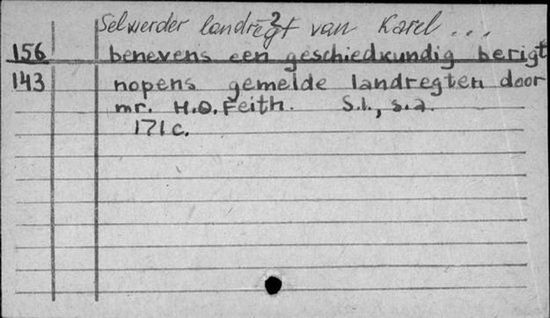 Selwerder landregt van Karel ...
2
156 benevens een geschiedkundig berigt
143 nopens gemelde landregten door
mr. H.O. Feith. S.l., s.a.
171c.